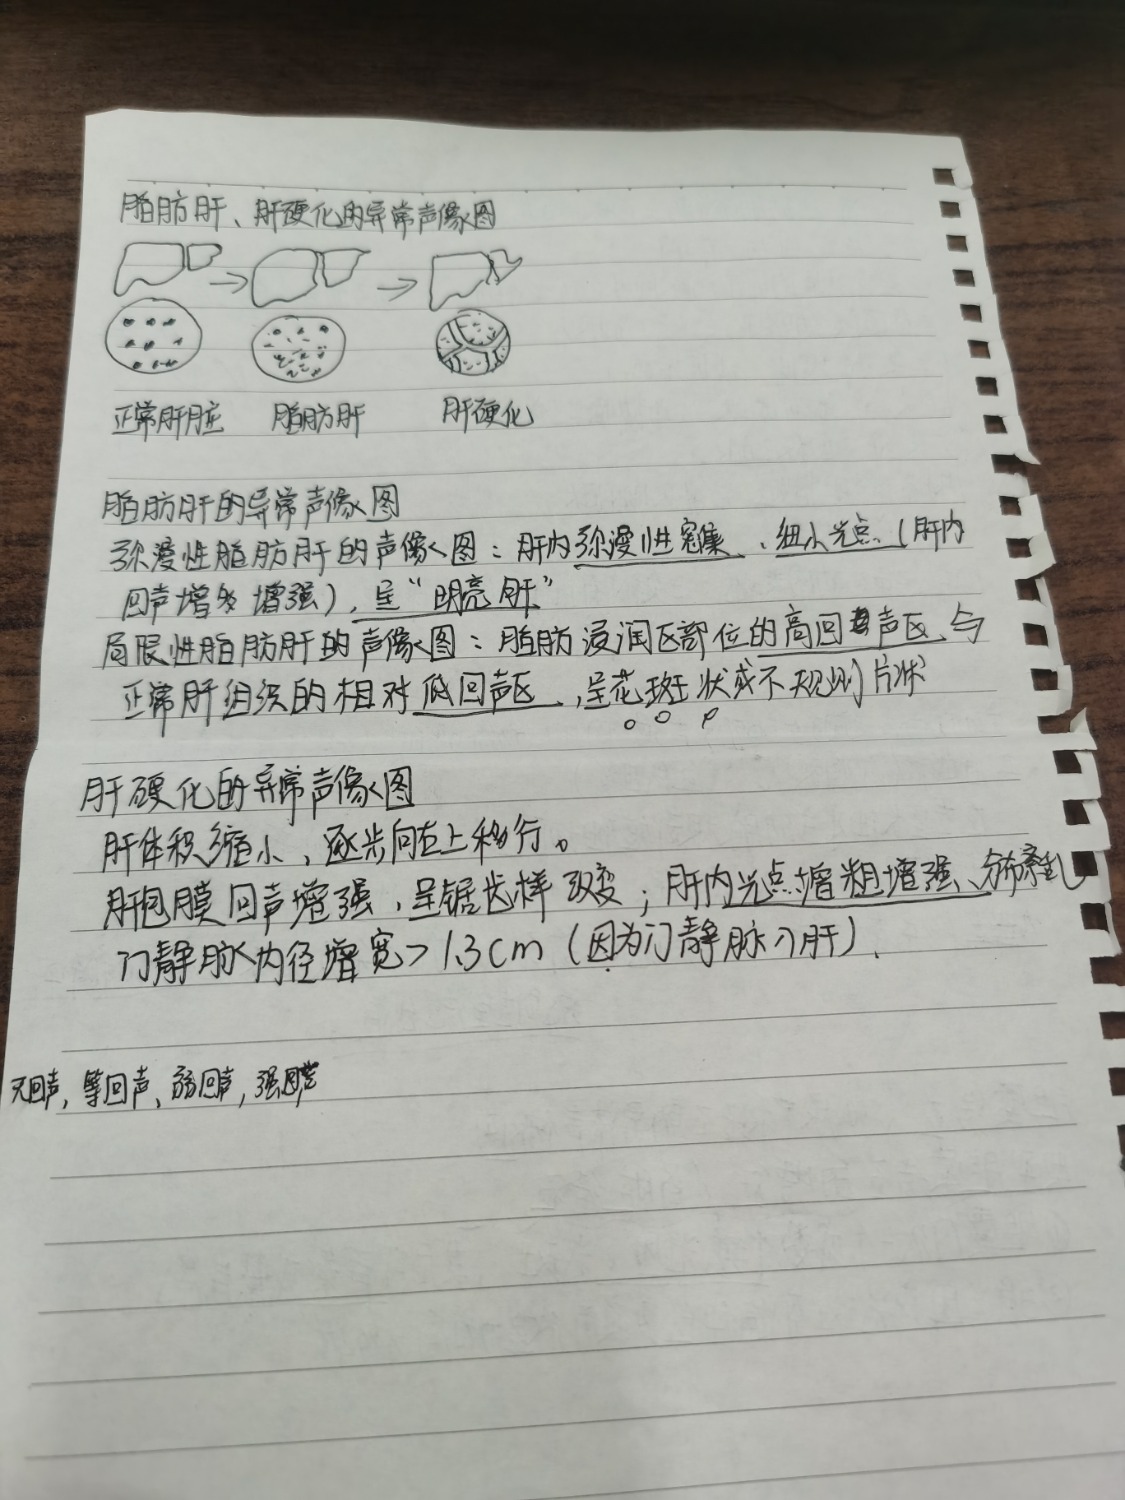 脂肪肝、肝硬化的异常声像图
正常肝脏 脂肪肝 肝硬化
脂肪肝的异常声像图
弥漫性脂肪肝的声像图：肝内弥漫性密集、细小光点（肝内
回声增多增强），呈“明亮肝”
局限性脂肪肝的声像图：脂肪浸润区部位的高回声区与
正常肝组织的相对低回声区，呈花斑状或不规则片状
肝硬化的异常声像图
肝体积缩小，逐步向右上移行。
肝包膜回声增强，呈锯齿样改变；肝内光点增粗增强、分布紊乱
门静脉内径增宽>1.3cm（因为门静脉入肝）.
无回声，等回声、弱回声，强回声